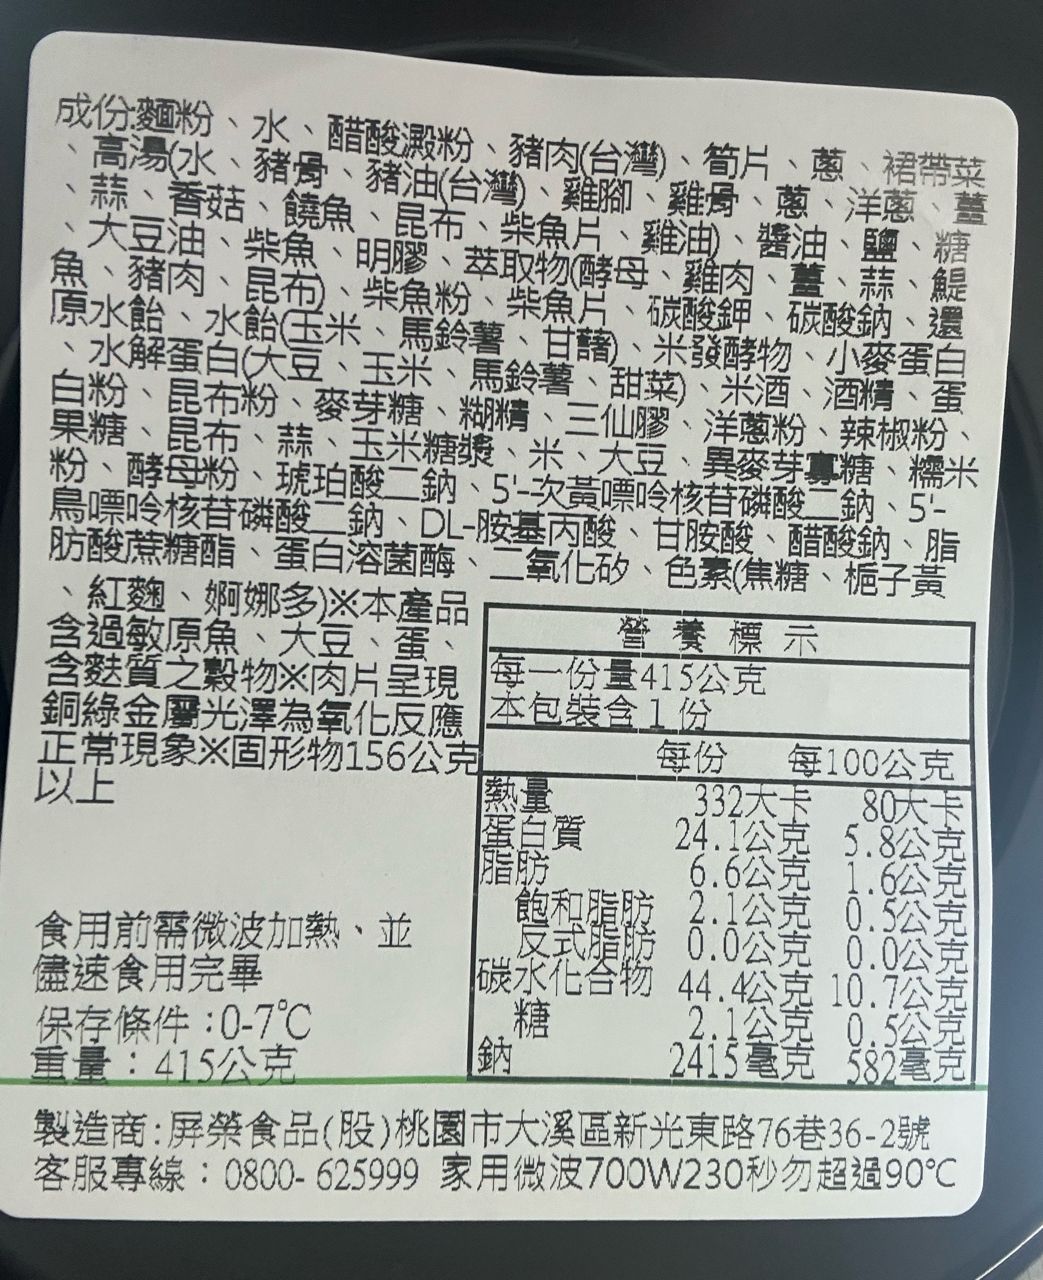 成份:麵粉、水、醋酸澱粉、豬肉(台灣)、筍片、蔥、裙帶菜
、高湯(水、豬骨、豬油(台灣)、雞腳、雞骨、蔥、洋蔥、薑
、蒜、香菇、饒魚、昆布、柴魚片、雞油)、醬油、鹽、糖
、大豆油、柴魚、明膠、萃取物(酵母、雞肉、薑、蒜、鯷
魚、豬肉、昆布)、柴魚粉、柴魚片、碳酸鉀、碳酸鈉、還
原水飴、水飴(玉米、馬鈴薯、甘藷)、米發酵物、小麥蛋白
、水解蛋白(大豆、玉米、馬鈴薯、甜菜)、米酒、酒精、蛋
白粉、昆布粉、麥芽糖、糊精、三仙膠、洋蔥粉、辣椒粉、
果糖、昆布、蒜、玉米糖漿、米、大豆、異麥芽寡糖、糯米
粉、酵母粉、琥珀酸二鈉、5'-次黃嘌呤核苷磷酸二鈉、5'-
鳥嘌呤核苷磷酸二鈉、DL-胺基丙酸、甘胺酸、醋酸鈉、脂
肪酸蔗糖酯、蛋白溶菌酶、二氧化矽、色素(焦糖、梔子黃
、紅麴、婀娜多)※本產品
含過敏原魚、大豆、蛋、
含麩質之穀物※肉片呈現
銅綠金屬光澤為氧化反應
正常現象※固形物156公克
以上
營養標示
每一份量415公克
本包裝含1份
每份 每100公克
熱量 332大卡 80大卡
蛋白質 24.1公克 5.8公克
脂肪 6.6公克 1.6公克
飽和脂肪 2.1公克 0.5公克
反式脂肪 0.0公克 0.0公克
碳水化合物 44.4公克 10.7公克
糖 2.1公克 0.5公克
鈉 2415毫克 582毫克
食用前需微波加熱、並
儘速食用完畢
保存條件:0-7℃
重量:415公克
製造商:屏榮食品(股)桃園市大溪區新光東路76巷36-2號
客服專線:0800-625999 家用微波700W230秒勿超過90℃